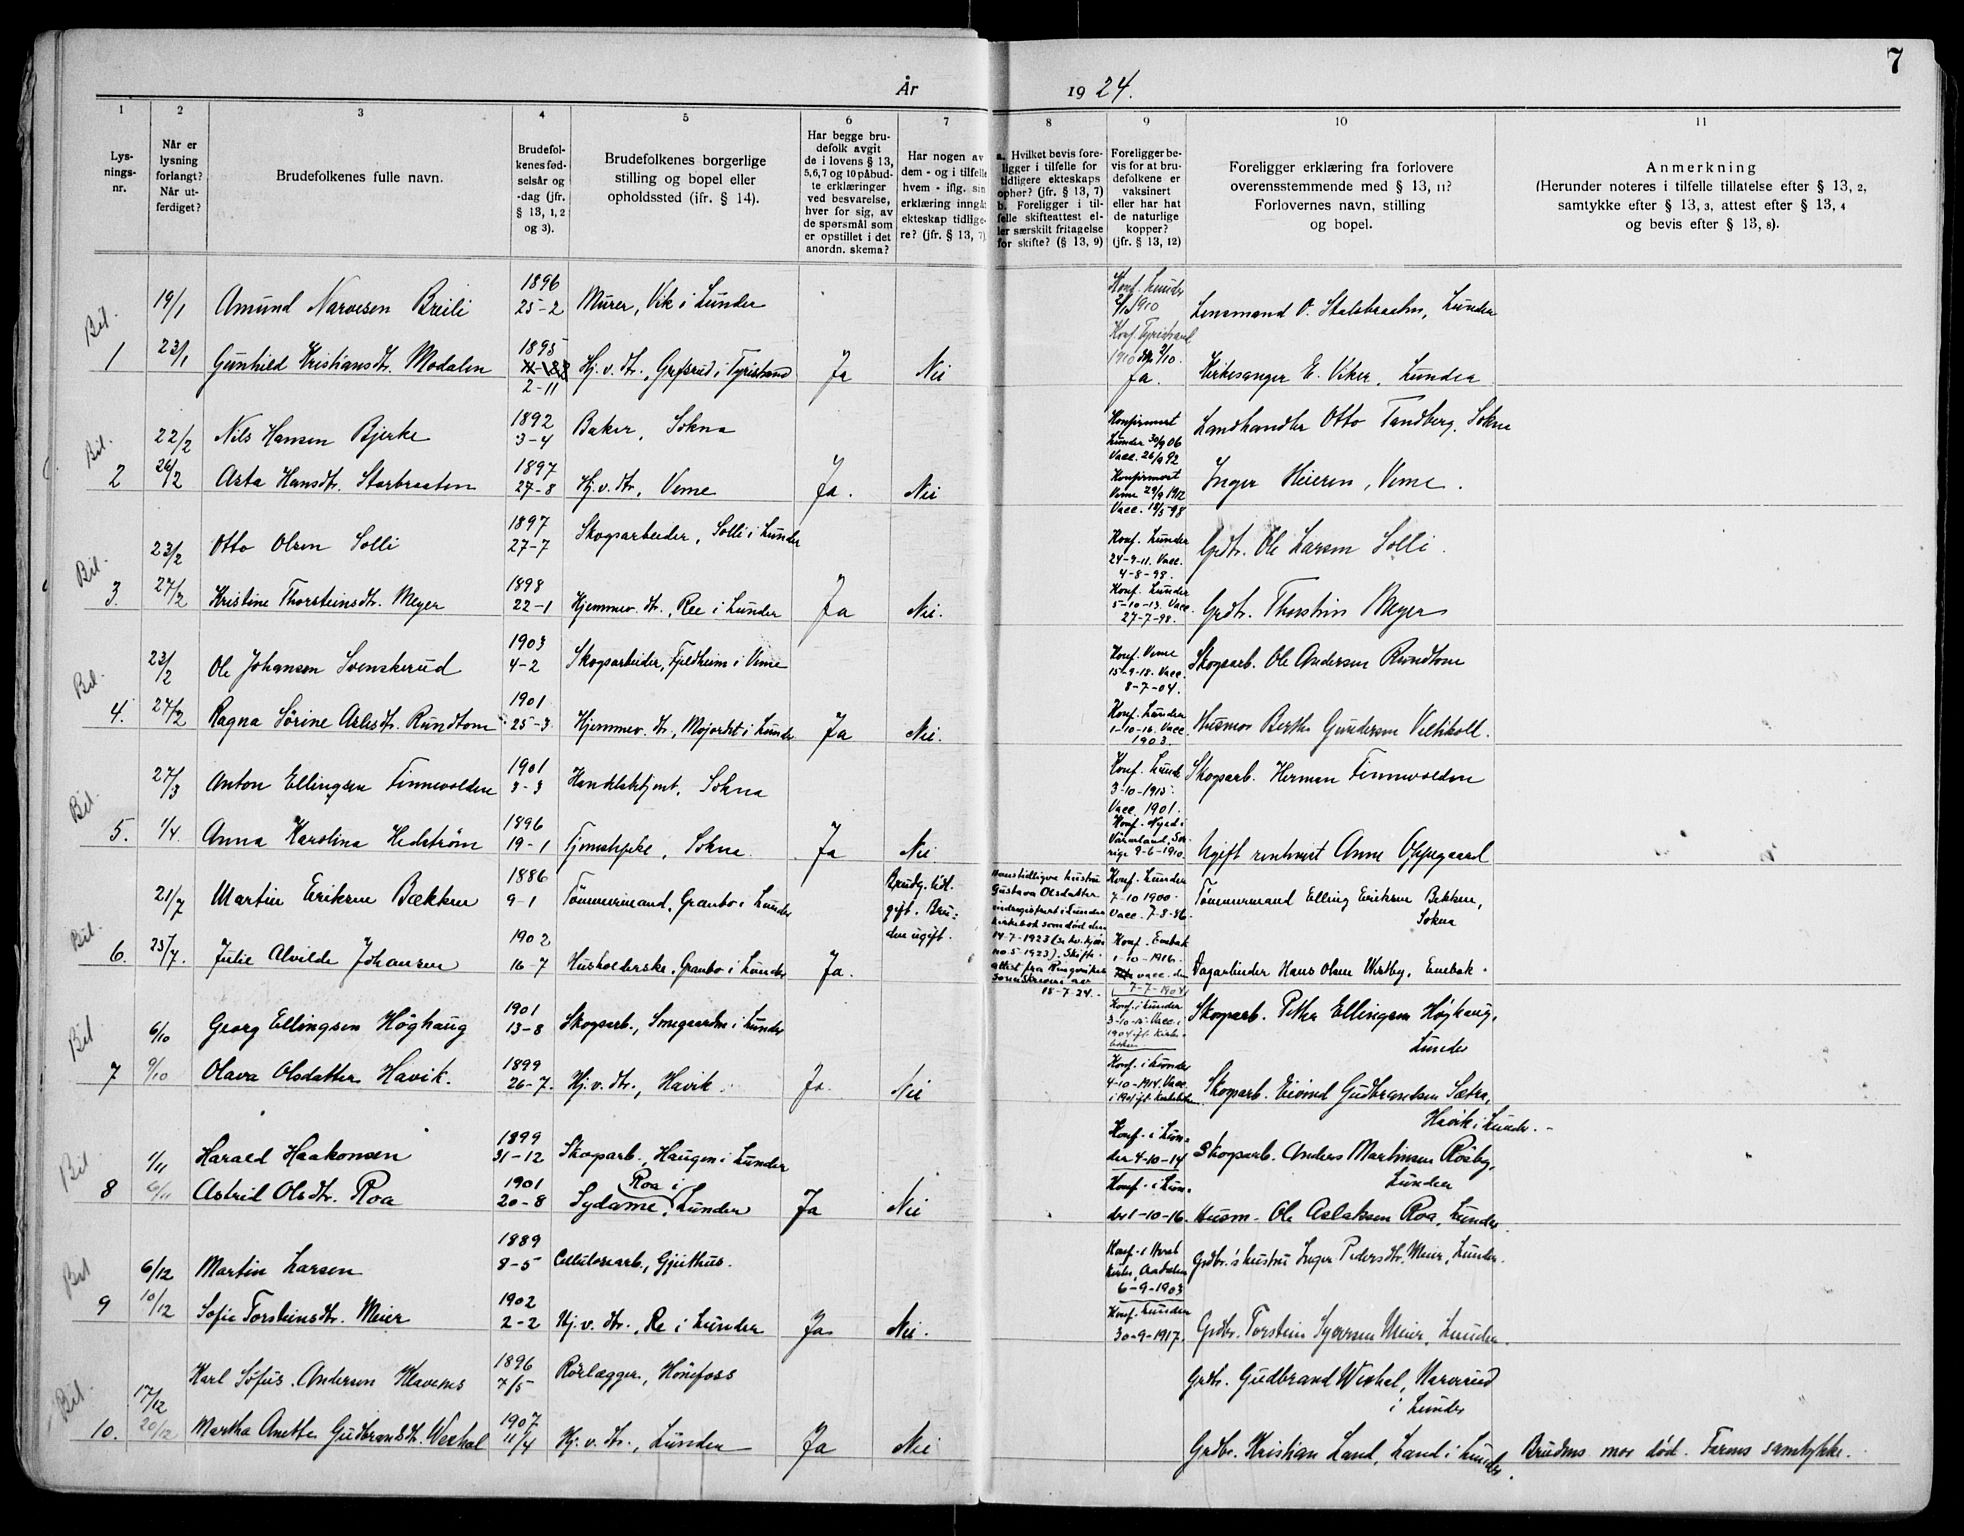 7
År 1924.
1 2 3 4 5 6 7 8 9 10 11
Lys-
nings-
nr.
Når er
lysning
forlangt?
Når ut-
ferdiget?
Brudefolkenes fulle navn.
Brudefol-
kenes fød-
selsår og
-dag (jfr.
§ 13, 1, 2
og 3).
Brudefolkenes borgerlige
stilling og bopel eller
opholdssted (ifr. § 14).
Har begge bru-
defolk avgit
de i lovens § 13,
5,6,7 og 10 påbud-
te erklæringer
ved besvarelse,
hver for sig, av
de spørsmål som
er opstillet i det
anordn. skema?
Har nogen av
dem - og i tilfelle
hvem - iflg. sin
erklæring inngåt
ekteskap tidlige-
re? (jfr. § 13, 7)
a. Hvilket bevis fore-
ligger i tilfelle for
tidligere ekteskaps
ophør? (jfr. § 13, 7)
b. Foreligger i til-
felle skifteattest el-
ler særskilt fritagelse
for skifte? (§ 13, 9)
Foreligger be-
vis for at bru-
defolkene er
vaksinert
eller har hat
de naturlige
kopper?
(jfr. § 13, 12)
Foreligger erklæring fra forlovere
overensstemmende med § 13, 11?
Forlovernes navn, stilling
og bopel.
Anmerkning
(Herunder noteres i tilfelle tillatelse efter § 13, 2,
samtykke efter § 13, 3, attest efter § 13, 4
og bevis efter § 13, 8).
Bil.
19/1 Amund Narvesen Breili 1896 25-2 Murer, Vik i Lunder Konf. Lunder 1910 Lensmand O. Stalsbraaten, Lunder
1 23/1 Gunhild Kristiansdtr. Modalen 1895 2-11 Hj.v.dtr., Grøsrud i Tyristrand Ja Nei Konf. Tyristrand 1910 Ja. Kirkesanger E. Viker, Lunder
Bil.
22/2 Nils Hansen Bjerke 1892 3-4 Baker, Sokna Konfirmert Lunder 30/9 06 Vacc. 26/9 92 Landhandler Otto Tandberg, Sokna
2 26/2 Asta Hansdtr. Storbraaten 1897 27-8 Hj.v.dtr, Veme Ja. Nei Konfirmert Veme 29/9 1912 Vacc. 18/5 98 Inger Heieren, Veme.
Bil.
23/2 Otto Olsen Solli 1897 27-7 Skogsarbeider, Solli i Lunder Konf. Lunder 24-9-11. Vacc. 4-8-98. Grdbr. Ole Larsen Solli.
3. 27/2 Kristine Thorsteinsdtr. Meyer 1898 22-1 Hjemmev. dtr., Ree i Lunder Ja Nei. Konf. Lunder 5-10-13. Vacc. 27-7-98. Grdbr. Thorstein Meyer
Bil.
23/2 Ole Johansen Svenskerud 1903 4-2 Skogsarbeider, Fjeldheim i Veme Konf. Veme 15-9-18. Vacc. 8-7-04. Skogsarb. Ole Andersen Rundtom
4. 27/2 Ragna Sørine Aslesdtr. Rundtom 1901 25-3 Hjemmev. dtr., Mojordet i Lunder Ja Nei. Konf. Lunder 1-10-16. Vacc. 1903. Husmor Berthe Gundersen Veltikoll.
Bil.
27/3 Anton Ellingsen Finnevolden 1901 3-3 Handelsbtjent, Sokna Konf. Lunde 3-10-1915. Vacc. 1901. Skogsarb. Herman Finnevolden
5. 1/4 Anna Karolina Hedstrøm 1896 19-1 Tjenestepike, Sokna. Ja Nei Konf. Nyed i Värmland, Sve- rige 9-6-1910. Ugift rentenist Anne Oppegaard
Bil.
21/7 Martin Eriksen Bækken 1886 9-1 Tømmermand, Granbo i Lunder Brudg. tidl. gift. Bru- den ugift. Hans tidligere hustru Gustava Olsdatter indregistrert i Lunder kirkebok som død den 14-7-1923 no. 5-1923). Skifte- attest fra Ringerike sorenskriveri av 18-7-24. Konf. Lunder 7-10 1900. Vacc. 7-8-86. Tømmermand Elling Eriksen Bekken, Sokna
6. 25/7. Julie Alvilde Johansen 1902 16-7 Husholderske, Granbo i Lunder Ja. Konf. Enebak 1-10-1916. vacc. den 7-7-1904. Dagarbeider Hans Olsen Westby, Enebak.
Bil
6/10 Georg Ellingsen Höghaug 1901 13-8 Skogsarb., Smegaarden i Lunder Konf. i Lunder 3-10-15. Vacc. i 1904 ifl. kirke- boken Skogsarb. Petter Ellingsen Höghaug, Lunder
7 9/10 Olava Olsdatter Havik. 1899 26-7. Hj.v.dtr., Havik. Ja. Nei Konf. i Lunder 4-10-1914. Vacc. i 1901 ifl. kirkeboken Skogsarb. Eivind Gudbrandsen Sætra, Havik i Lunder.
Bil
1/11 Harald Haakonsen 1899 31-12 Skogsarb., Haugen i Lunder Konf. i Lun- der 4-10-14 Skogsarb. Anders Martinsen Rösby, Lunder
8 6/11 Astrid Olsdtr. Roa 1901 20-8 Sydame, Roa i Lunder Ja Nei Konf. i Lun- der 1-10-16. Husm. Ole Aslaksen Roa, Lunder.
Bil
6/12 Martin Larsen 1889 8-5 Cellulosearb., Gjuthus. Konf. i Hval kirke, Aadalen 6-9-1903 Grdbr.'s hustru Inger Pedersdtr. Meier, Lunder.
9 10/12 Sofie Torsteinsdtr. Meier 1902 2-2 Hj.v.dtr., Re i Lunder Ja Nei. Konf. Lunder 30-9-1917. Grdbr. Torstein Syversen Meier, Lunder.
Bil.
17/12 Karl Sofus Andersen Klavenes 1896 7/5 Rörlægger, Hönefoss Grdbr. Gudbrand Wexhal, Narverud i Lunder
10. 20/12 Martha Anette Gudbrandsdtr. Wexhal 1907 11/4 Hj.v.dtr., Lunder Ja Nei Grdbr. Kristian Land, Land i Lunder. Brudens mor död. Farens samtykke.